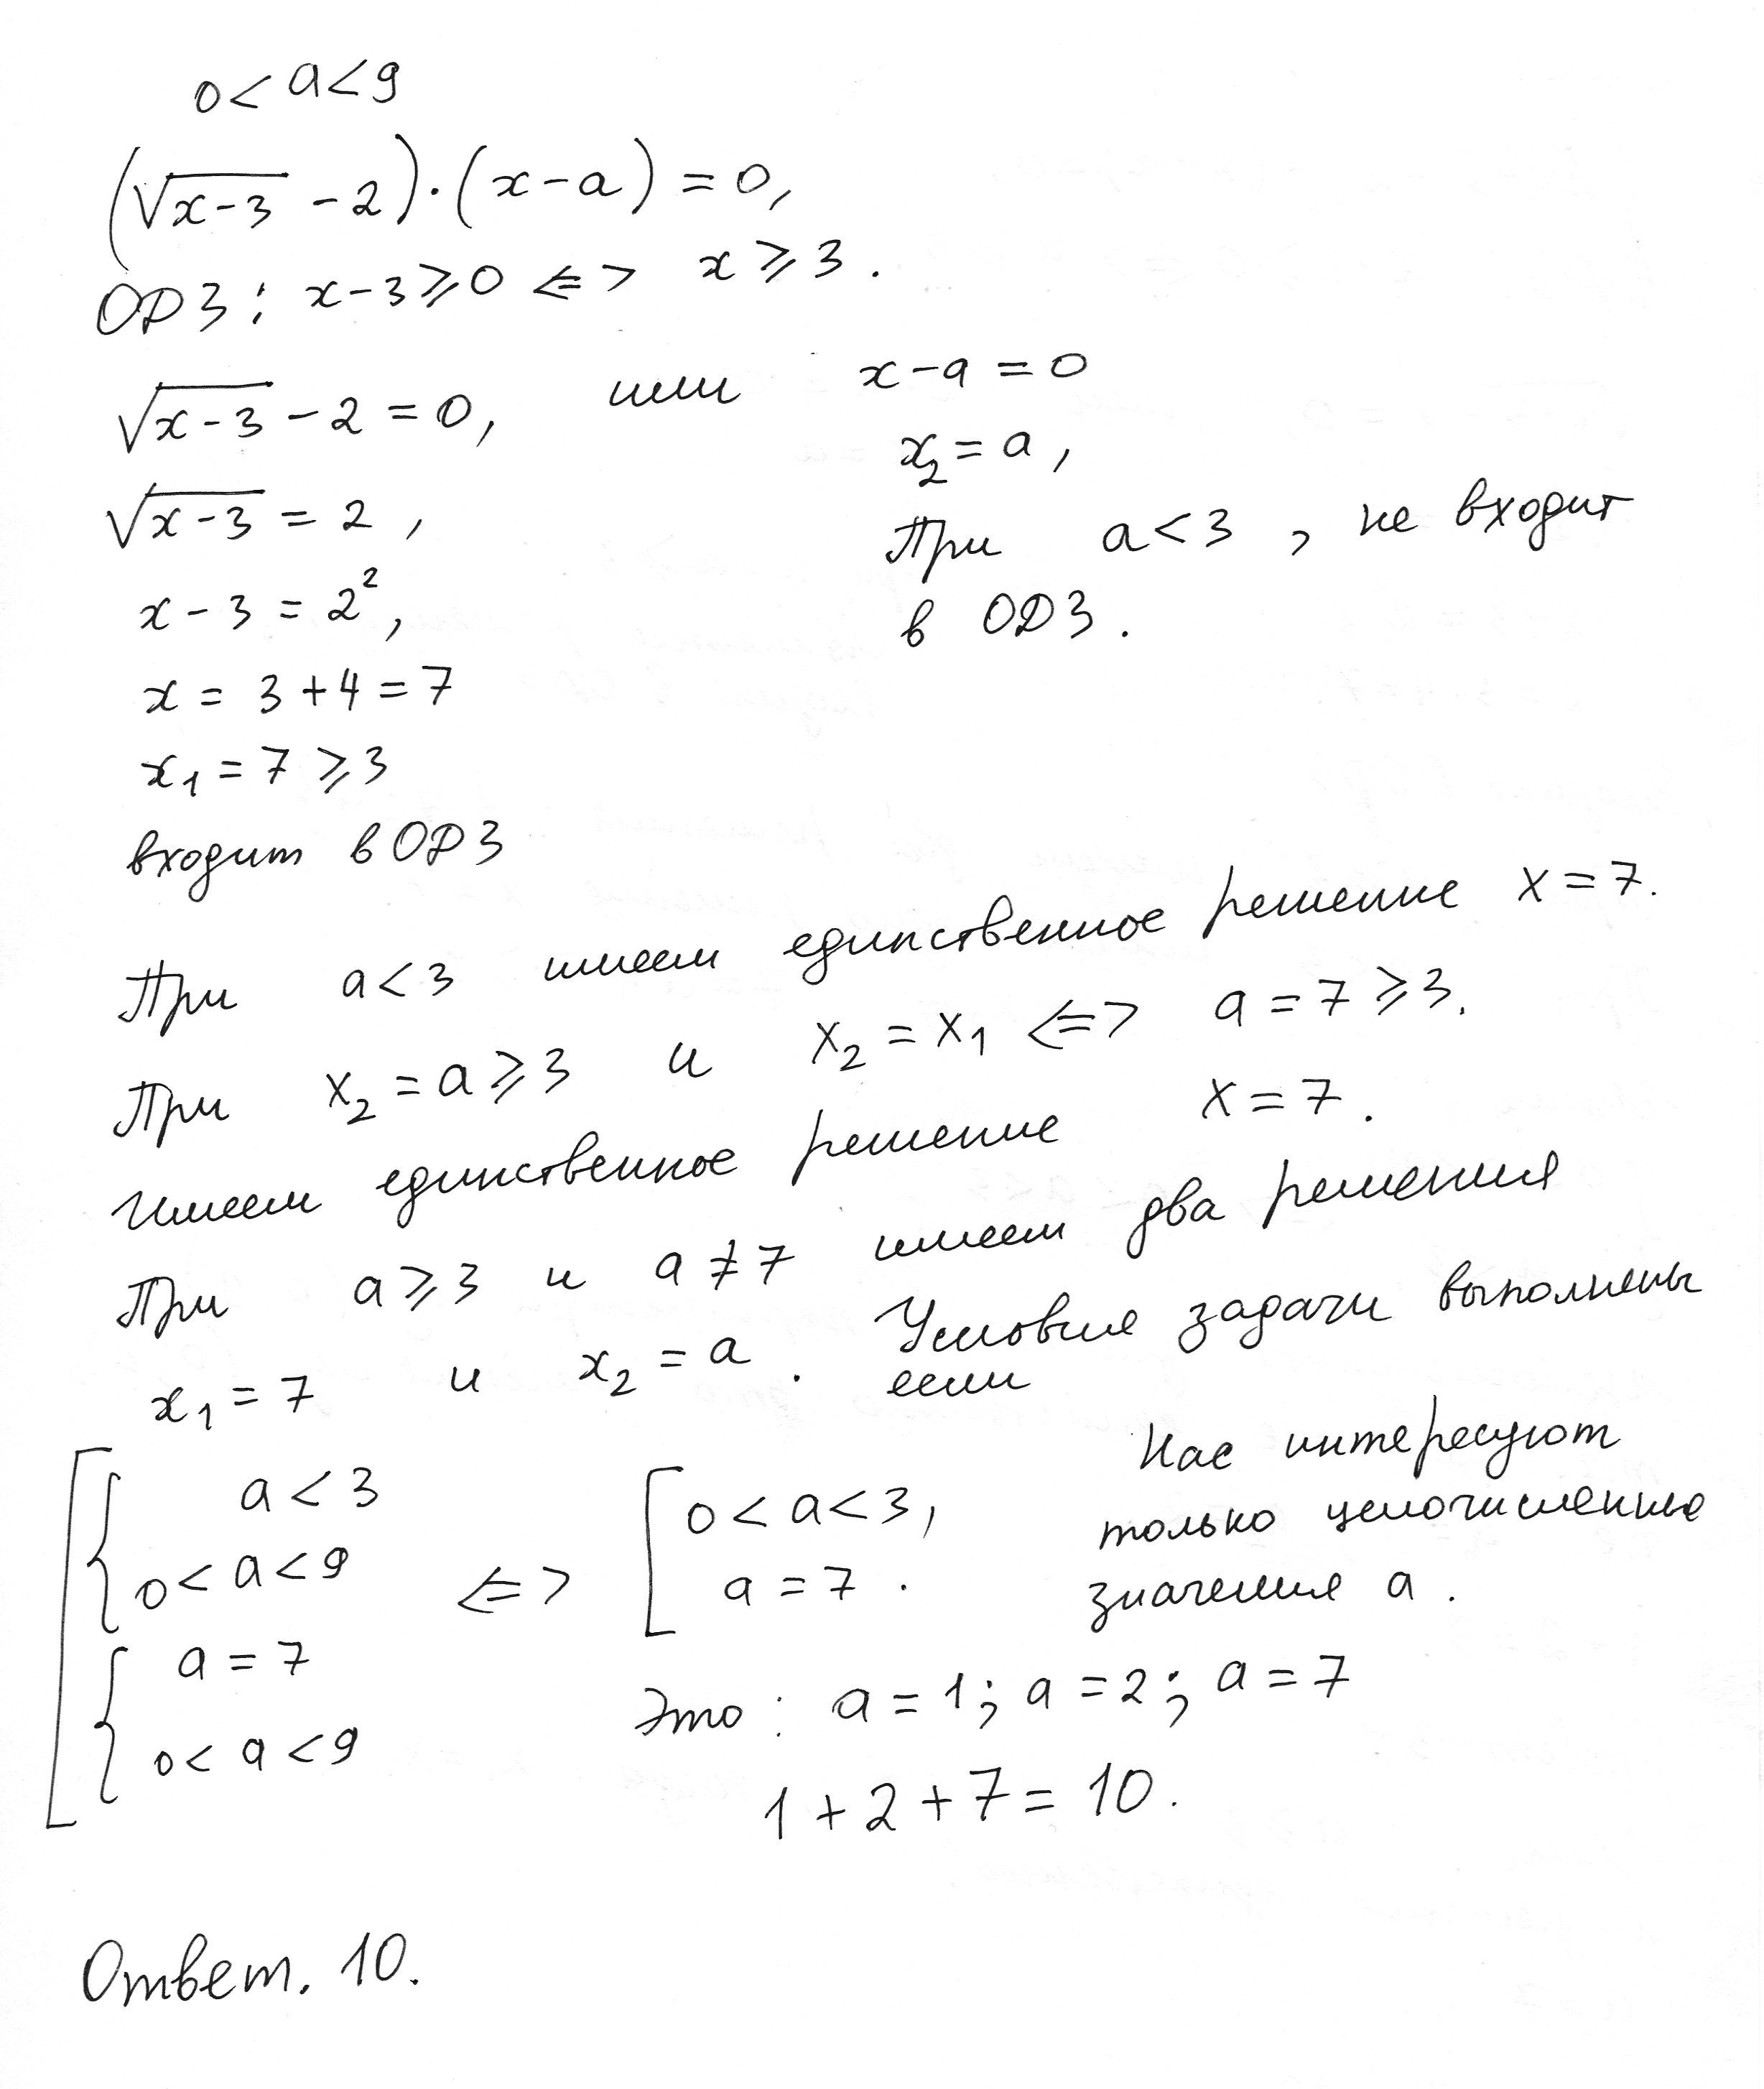 0 < a < 9
(√(x-3) - 2)·(x-a) = 0,
ОДЗ: x-3 ⩾ 0 <=> x ⩾ 3.
√(x-3) - 2 = 0, или x-a = 0
x₂ = a,
√(x-3) = 2,
При a < 3, не входит
в ОДЗ.
x - 3 = 2²,
x = 3 + 4 = 7
x₁ = 7 ⩾ 3
входит в ОДЗ
При a < 3 имеем единственное решение x = 7.
При x₂ = a ⩾ 3 и x₂ = x₁ <=> a = 7 ⩾ 3.
Имеем единственное решение x = 7.
При a ⩾ 3 и a ≠ 7 имеем два решения
x₁ = 7 и x₂ = a. Условие задачи выполнены
если
[ { a < 3
0 < a < 9
{ a = 7
0 < a < 9
<=>
[ 0 < a < 3,
a = 7.
Нас интересуют
только целочисленные
значения a.
Это: a = 1; a = 2; a = 7
1 + 2 + 7 = 10.
Ответ. 10.